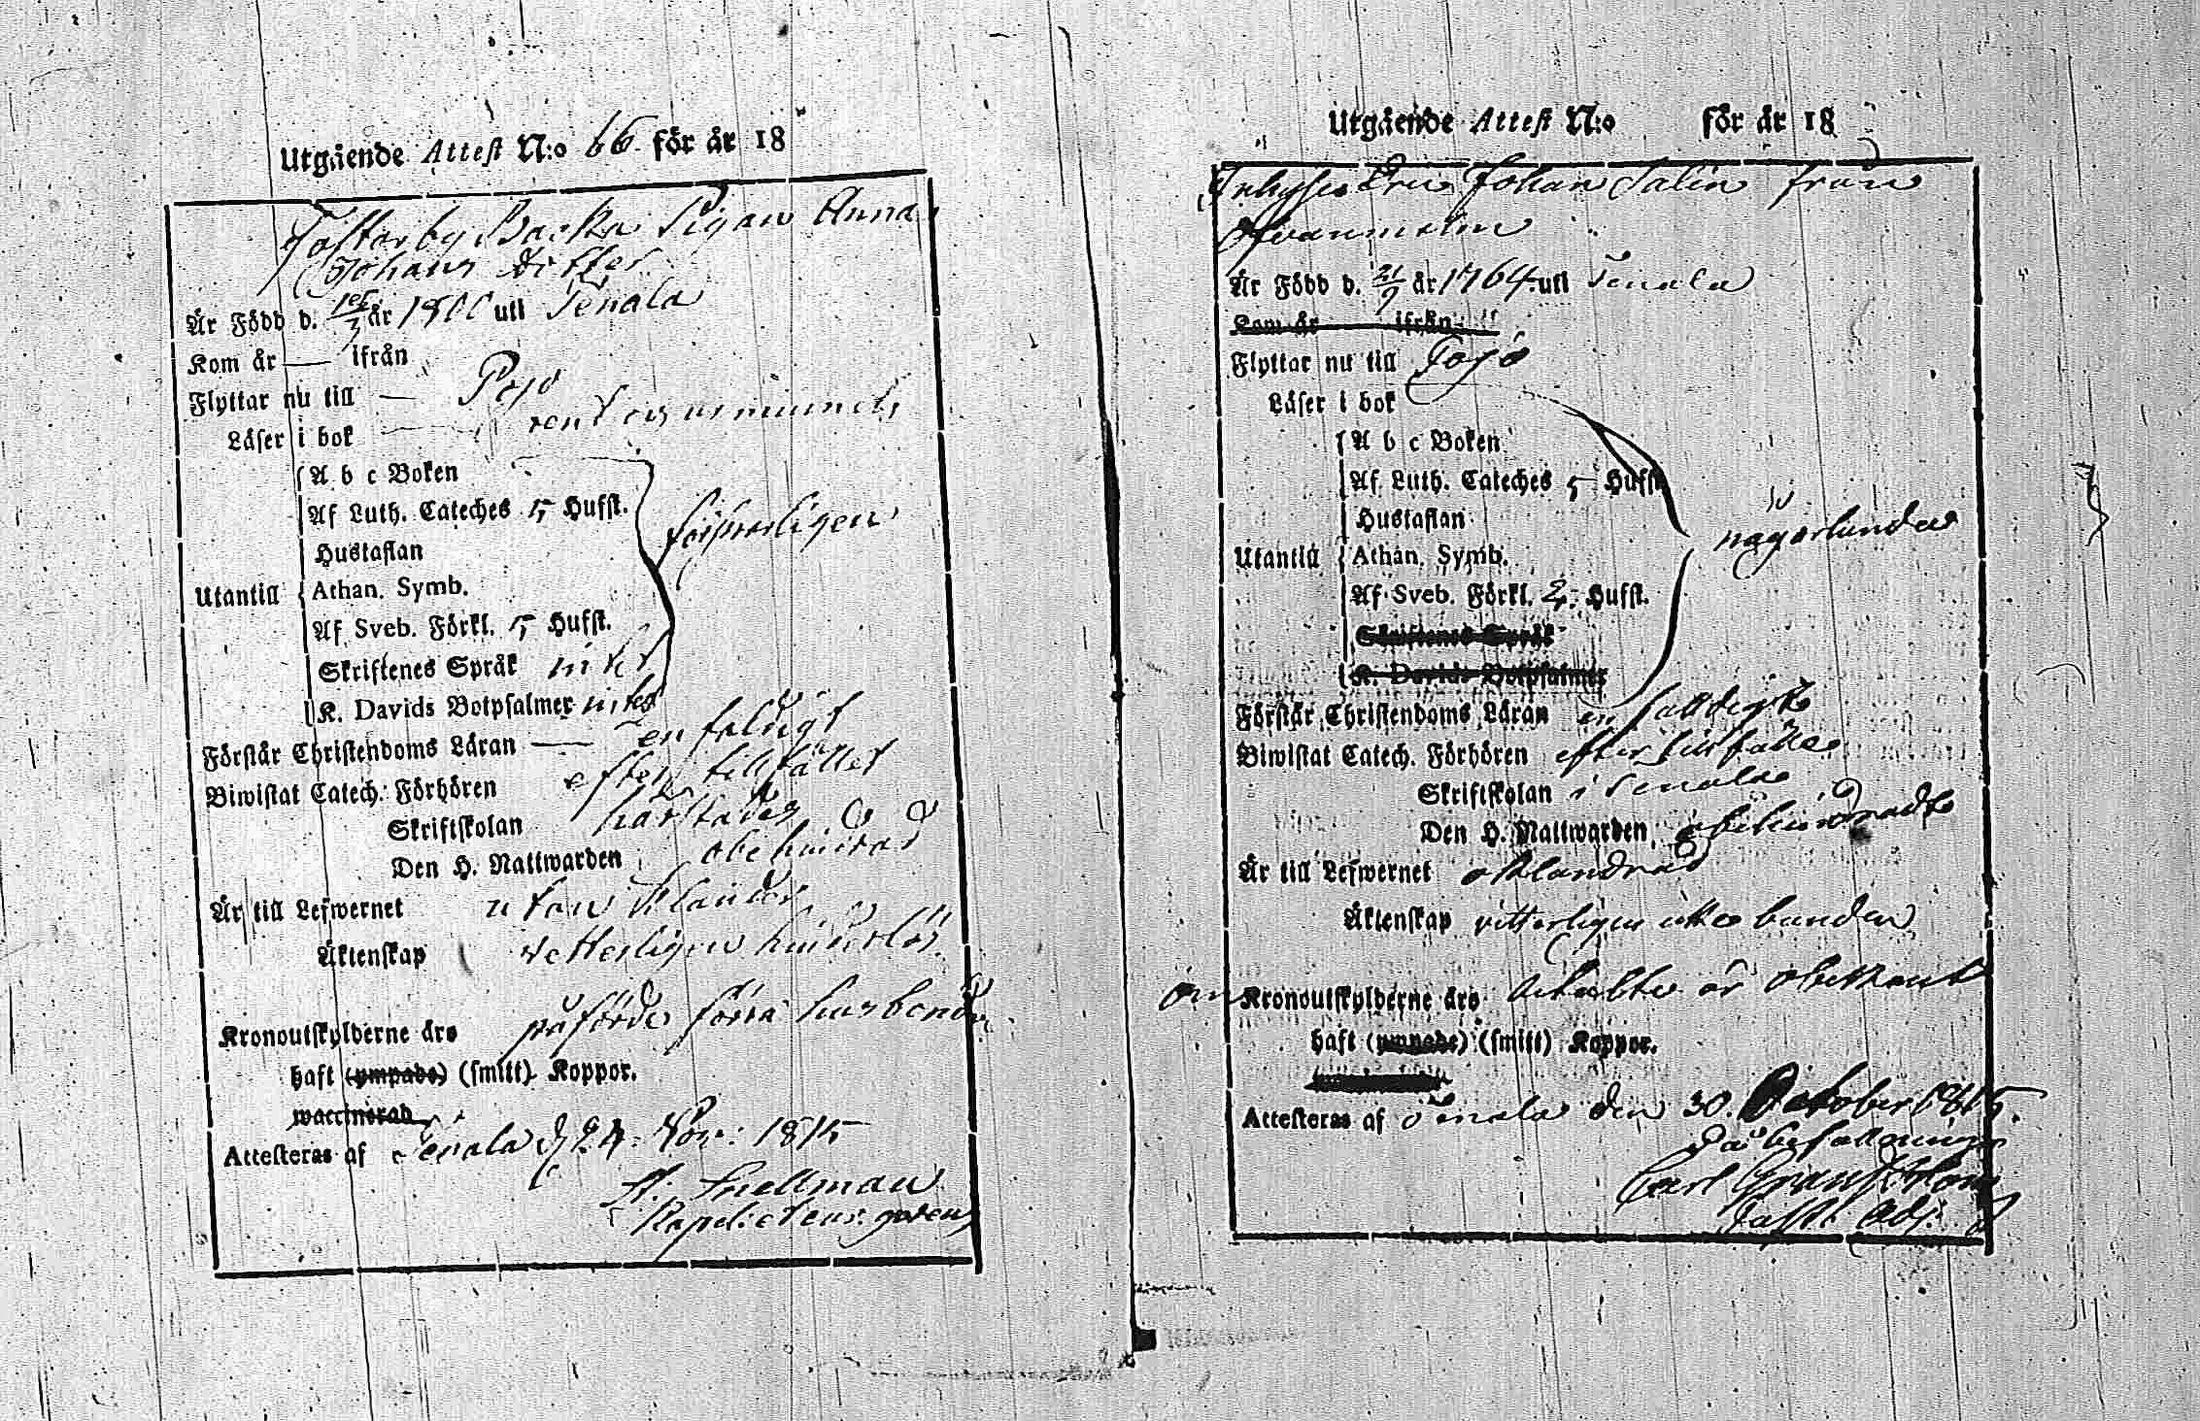 Utgående Attest N:o 66 för år 18
Tofterby Backa Pigan Anna
Johans dotter
Är Född d. år 1800 utl Tenala
Kom år — ifrån
Flyttar nu till — Pojo
Läser i bok rent och
A b c Boken
Af Luth. Cateches 5 Hufst.
Hustaflan
försvarligen
Utantill Athan. Symb.
Af Sveb. Förkl. 5 Hufst.
Skriftenes Språk intet
K. Davids Botpsalmer intet
Förstår Christendoms Läran — enfaldigt
Biwistat Catech. Förhören efter tillfället
Skriftskolan härstädes
Den H. Nattwarden obehindrad
Är till Lefwernet utan klander
Äktenskap vetterligen hinderlös
Kronoutskylderne äro påförde förra husbonden
haft (ympade) (smitt) Koppor.
waccinerad
Attesteras af Tenala d. 24 Nov: 1815
A. Snellman
Kapel.
Utgående Attest N:o för år 18
Inhyses Johan Salin från
Är Född d. 21/9 år 1764 utl Tenala
Kom år ifrån
Flyttar nu till Pojo
Läser i bok
A b c Boken
Af Luth. Cateches 5 Hufst.
Hustaflan
någorlunda
Utantill Athan. Symb.
Af Sveb. Förkl. 2 Hufst.
Skriftenes Språk
K. Davids Botpsalmer
Förstår Christendoms Läran enfaldigt
Biwistat Catech. Förhören efter tillfälle
Skriftskolan i Tenala
Den H. Nattwarden obehindradt
Är till Lefwernet oklandrad
Äktenskap vitterligen icke bunden
Om Kronoutskylderne äro betalte är obekant
haft (ympade) (smitt) Koppor.
Attesteras af Tenala den 30. October 1815.
På befallning
Carl
Adj.